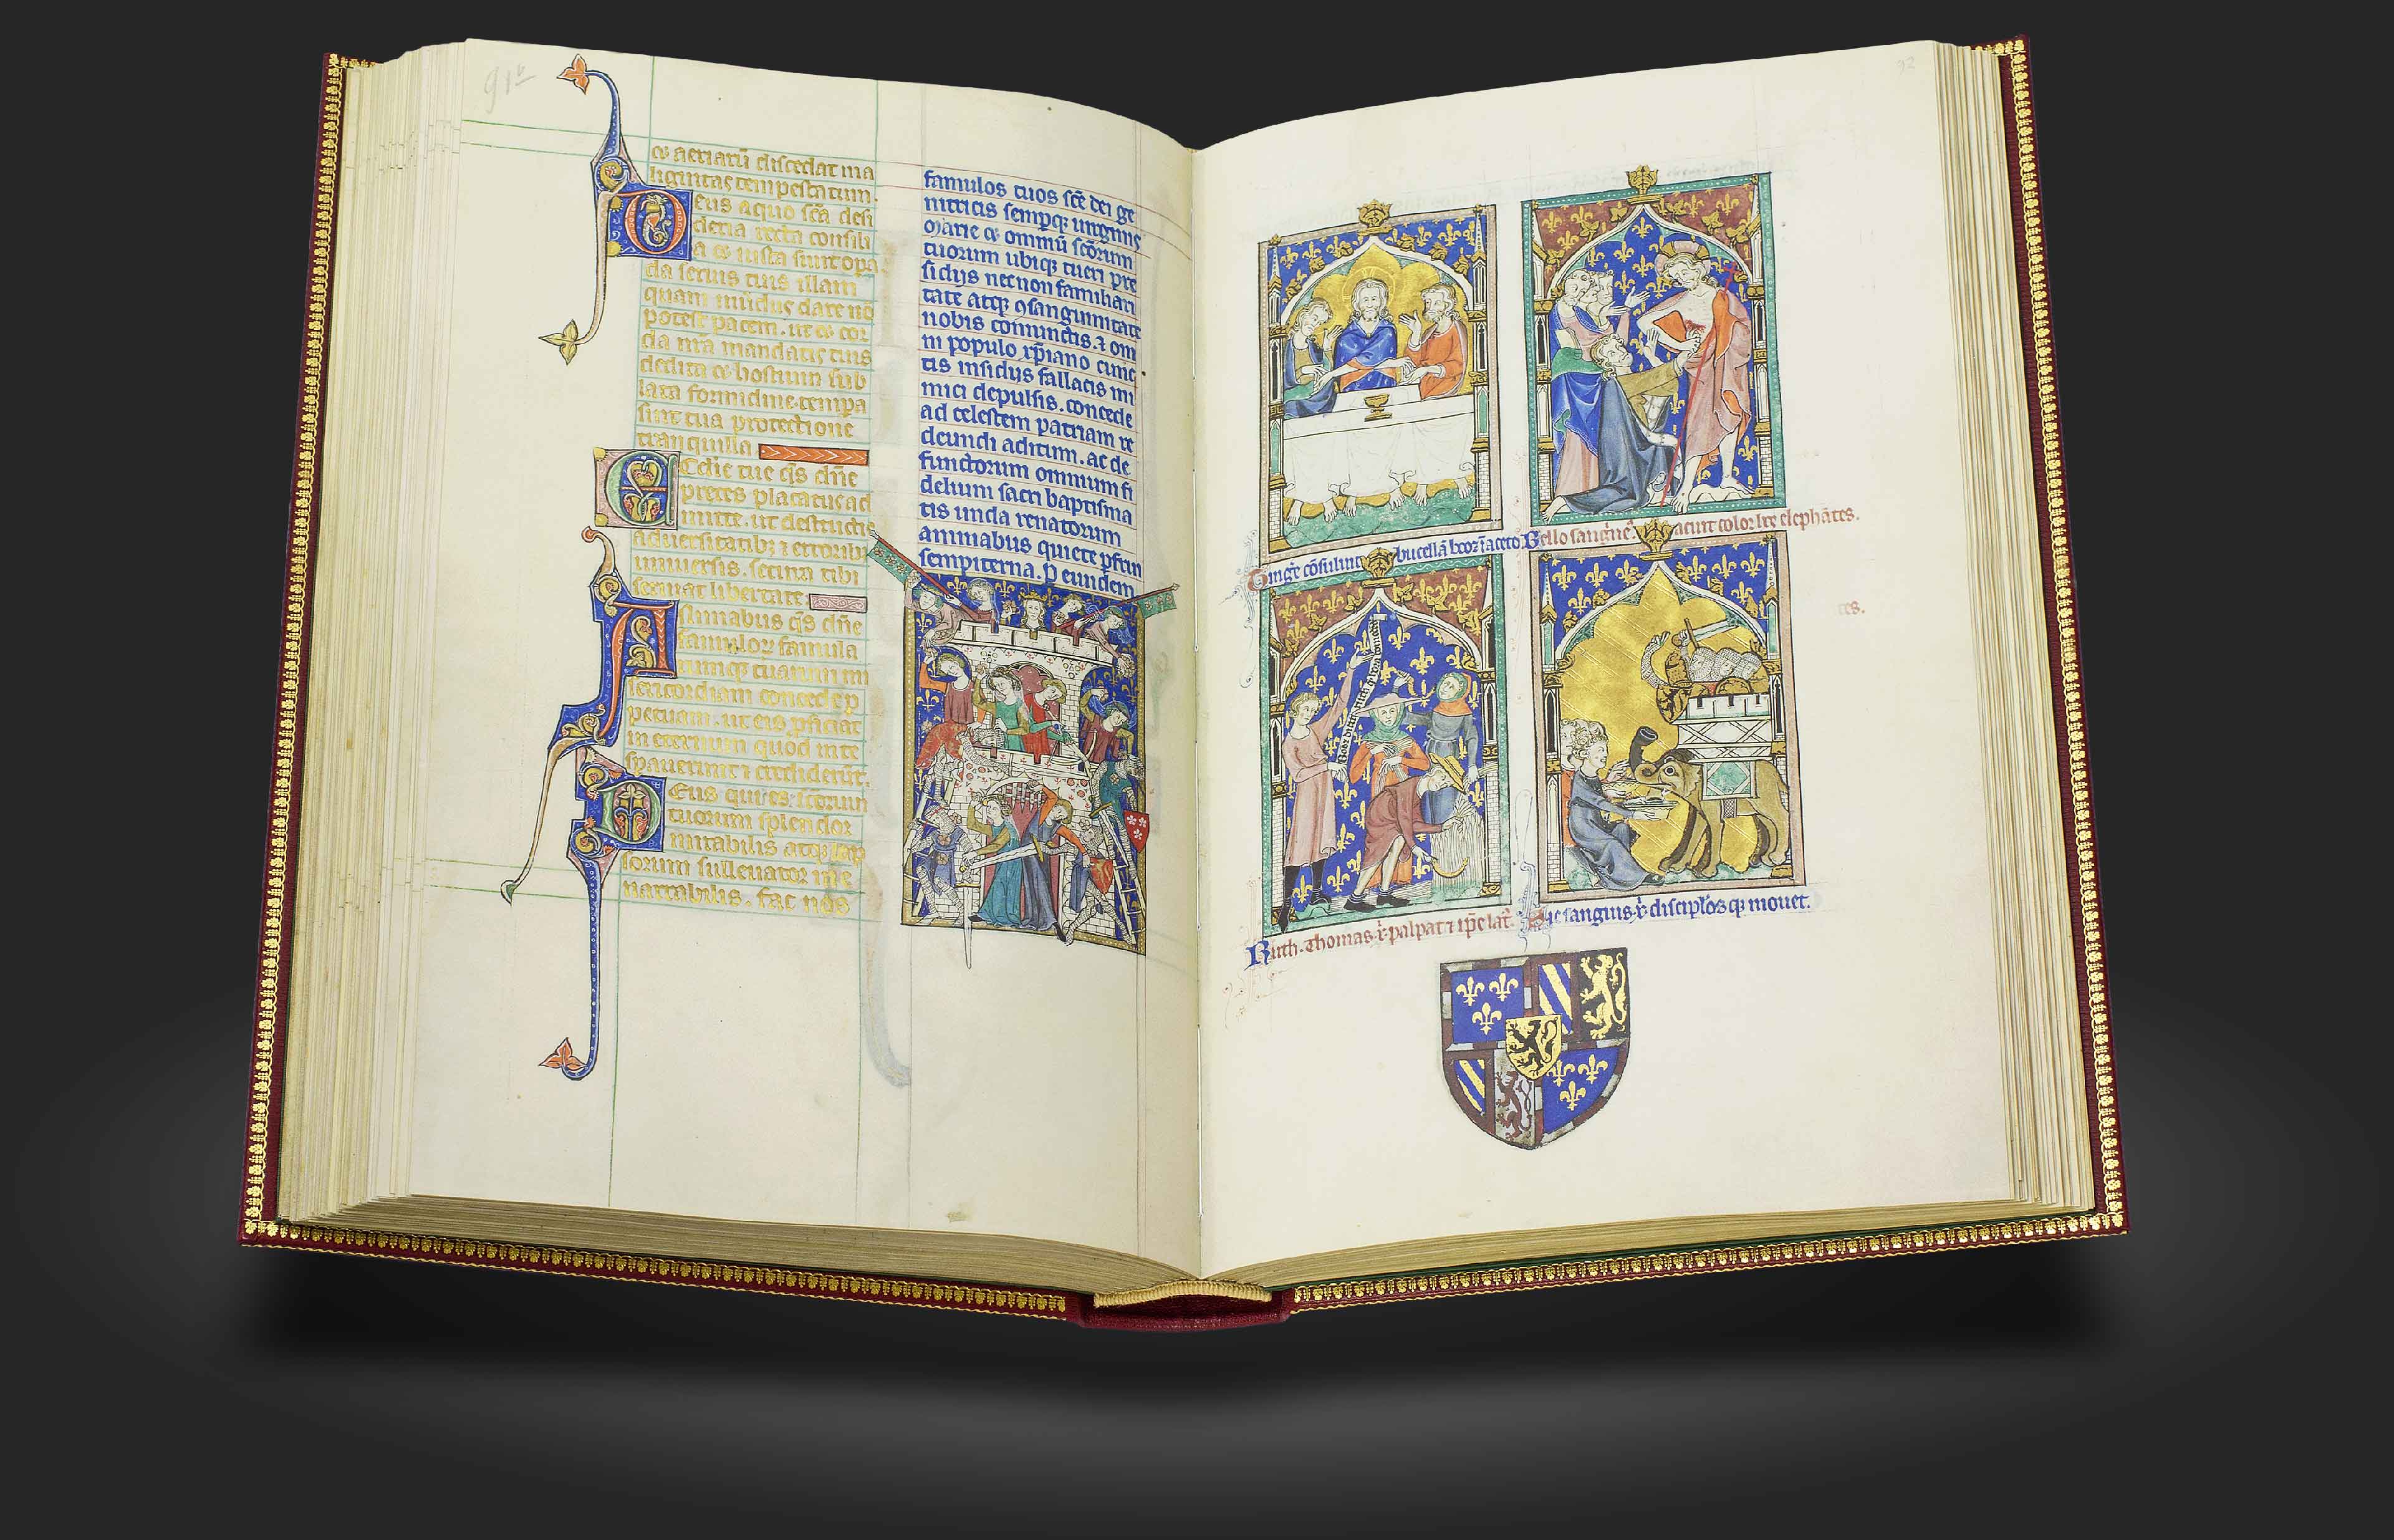 91b
& aeriarū discedat ma
lignitas tempestatum.
Deus a quo scā desi
deria recta consili
a & iusta sunt opa
da seruis tuis illam
quam mūdus dare nō
potest pacem. ut & cor
da nr̄a mandatis tuis
dedita & hostium sub
lata formidine. tempa
sint tua protectione
tranquilla
Ecclīe tue qs̄ dn̄e
preces placatus ad
mitte. ut destructis
aduersitatibȝ ⁊ erroribȝ
uniuersis. secura tibi
seruiat libertate
Animabus qs̄ dn̄e
famulorȝ famula
rumqȝ tuarum mi
sericordiam concede p
petuam. ut eis pficiat
in eternum quod in te
spauerunt ⁊ crediderūt.
Deus qui es scōrum
tuorum splendor
mirabilis atqȝ lap
sorum subleuator ine
narrabilis. fac nos
famulos tuos scē dei ge
nitricis sempqȝ uirginis
Marie & omniū scōrum
tuorum ubiqȝ tueri pre
sidijs nec non familiari
tate atqȝ ɔsanguinitate
nobis coniunctis. ⁊ om
ni populo xp̄iano cunc
tis insidijs fallacis ini
mici depulsis. concede
ad celestem patriam re
deundi aditum. ac de
functorum omnium fi
delium sacri baptisma
tis unda renatorum
animabus quiete pfrui
sempiterna. P eundem
92
Tinge cōsulint bucellā booz ī aceto
Bello sangūe acuit color hec elephātes.
tes.
Ruth. Thomas x̄ palpat ⁊ ip̄e lat᷒
Hic sanguis x̄ discipl̄os qȝ mouet.